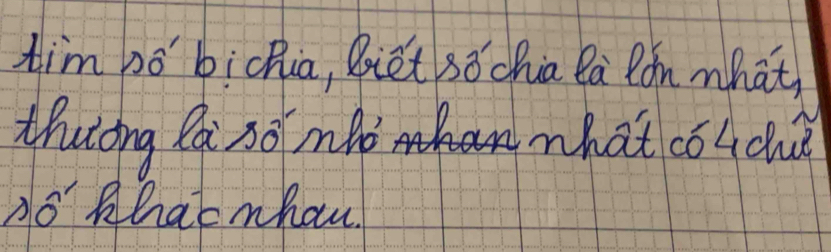 tìm số bị chia, biết số chia là lớn nhất,
thương là số nhỏ nhất có 4 chữ
số khác nhau.